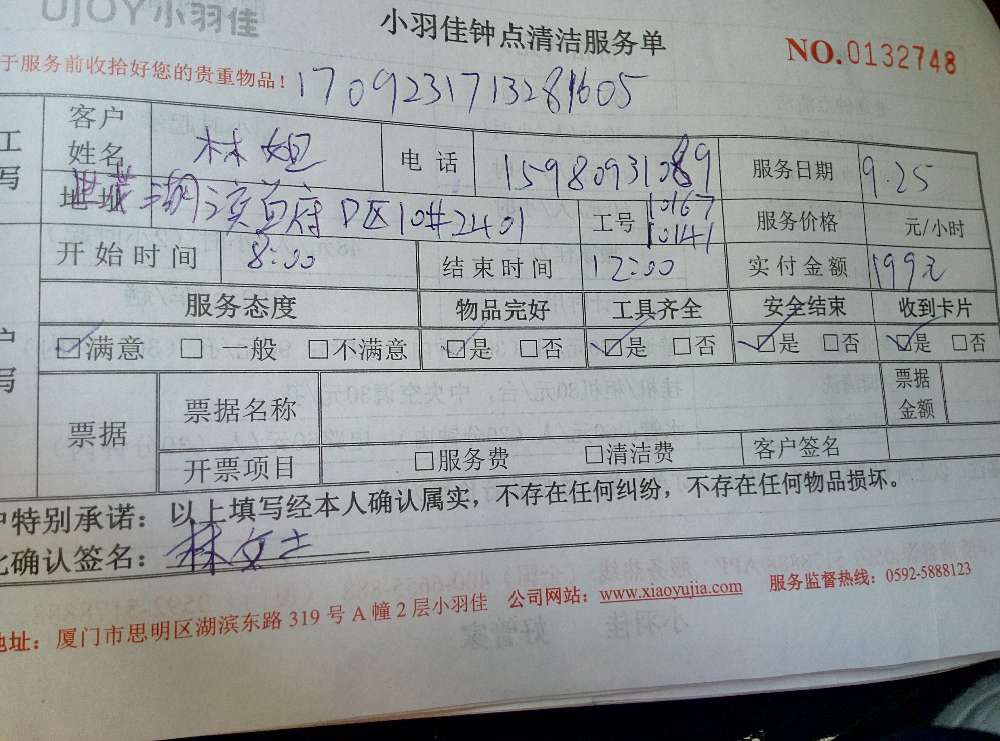 UJOY小羽佳
小羽佳钟点清洁服务单
NO.0132748
于服务前收拾好您的贵重物品！
1709231713281605
客户姓名 林姐 电话 15980931089 服务日期 9.25
地址 湖滨首府D区10#2401 工号 10167 10141 服务价格 元/小时
开始时间 8:00 结束时间 12:00 实付金额 199元
服务态度 物品完好 工具齐全 安全结束 收到卡片
☑满意 □一般 □不满意 ☑是 □否 ☑是 □否 ☑是 □否 ☑是 □否
票据 票据名称 票据金额
开票项目 □服务费 □清洁费 客户签名
户特别承诺：以上填写经本人确认属实，不存在任何纠纷，不存在任何物品损坏。
此确认签名：林女士
地址：厦门市思明区湖滨东路319号A幢2层小羽佳 公司网站：www.xiaoyujia.com 服务监督热线：0592-5888123